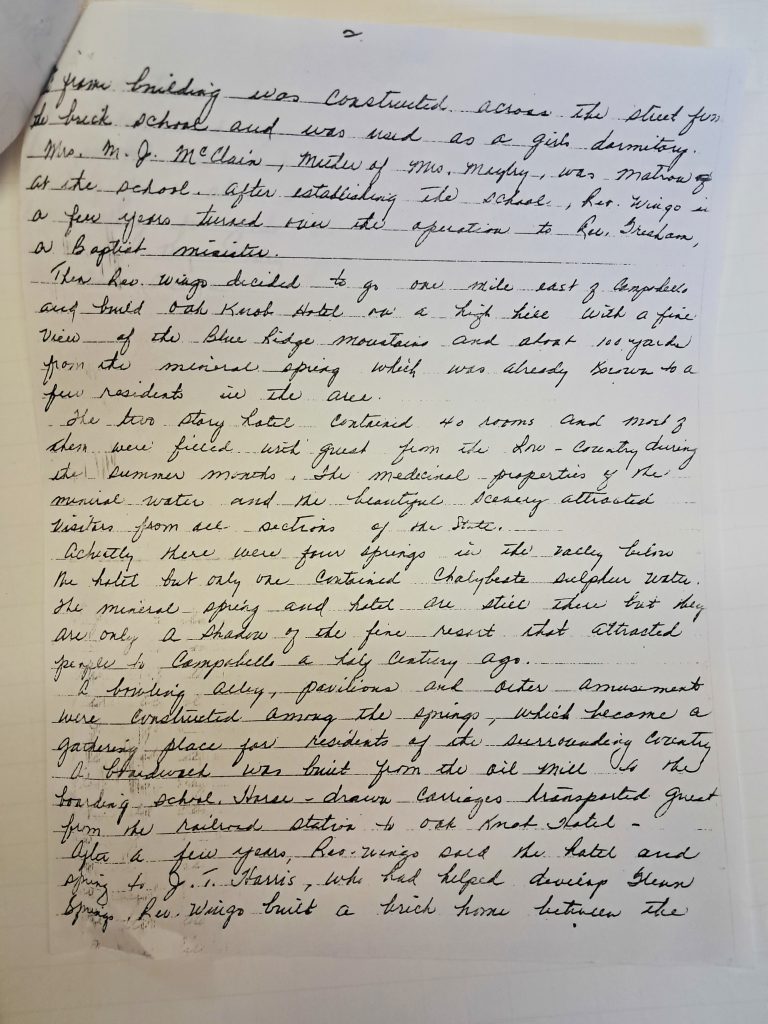 2
frame building was constructed across the street from
the brick school and was used as a girls dormitory.
Mrs. M. J. McClain, Mother of Mrs. Maybry, was matron
at the school. After establishing the school, Rev. Wingo in
a few years turned over the operation to Rev. Gresham,
a Baptist minister.
Then Rev. Wingo decided to go one mile east of Campobello
and build Oak Knob Hotel on a high hill with a fine
View of the Blue Ridge mountains and about 100 yards
from the mineral spring which was already known to a
few residents in the area.
The two story hotel contained 40 rooms and most of
them were filled with guest from the Low-Country during
the summer months. The medicinal properties of the
mineral water and the beautiful scenery attracted
visitors from all sections of the State.
Actually there were four springs in the valley below
the hotel but only one contained Chalybeate sulphur water.
The mineral spring and hotel are still there but they
are only a shadow of the fine resort that attracted
people to Campobello a half century ago.
A bowling alley, pavilions and other amusement
were constructed among the springs, which became a
gathering place for residents of the surrounding country
A boardwalk was built from the oil mill to the
boarding school. Horse-drawn carriages transported guest
from the railroad station to Oak Knob Hotel -
After a few years, Rev. Wingo sold the hotel and
spring to J. T. Harris, who had helped develop Glenn
Springs. Rev. Wingo built a brick home between the